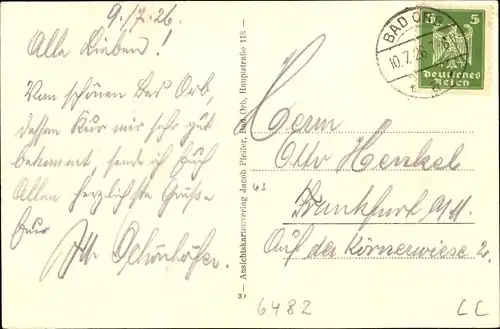 9./7.26.
Alle Lieben!
Vom schönen Bad Orb,
dessen Kur mir sehr gut
bekommt, sende ich Euch
Allen herzlichste Grüße
Euer
3) – Ansichtskartenverlag Jacob Pfeifer, Bad Orb, Hauptstraße 118 –
5 5
Deutsches
Reich
BAD ORB
10.7.26
Herrn
Otto Henkel
Frankfurt a/M.
Auf der Körnerwiese 2.
6482
CC